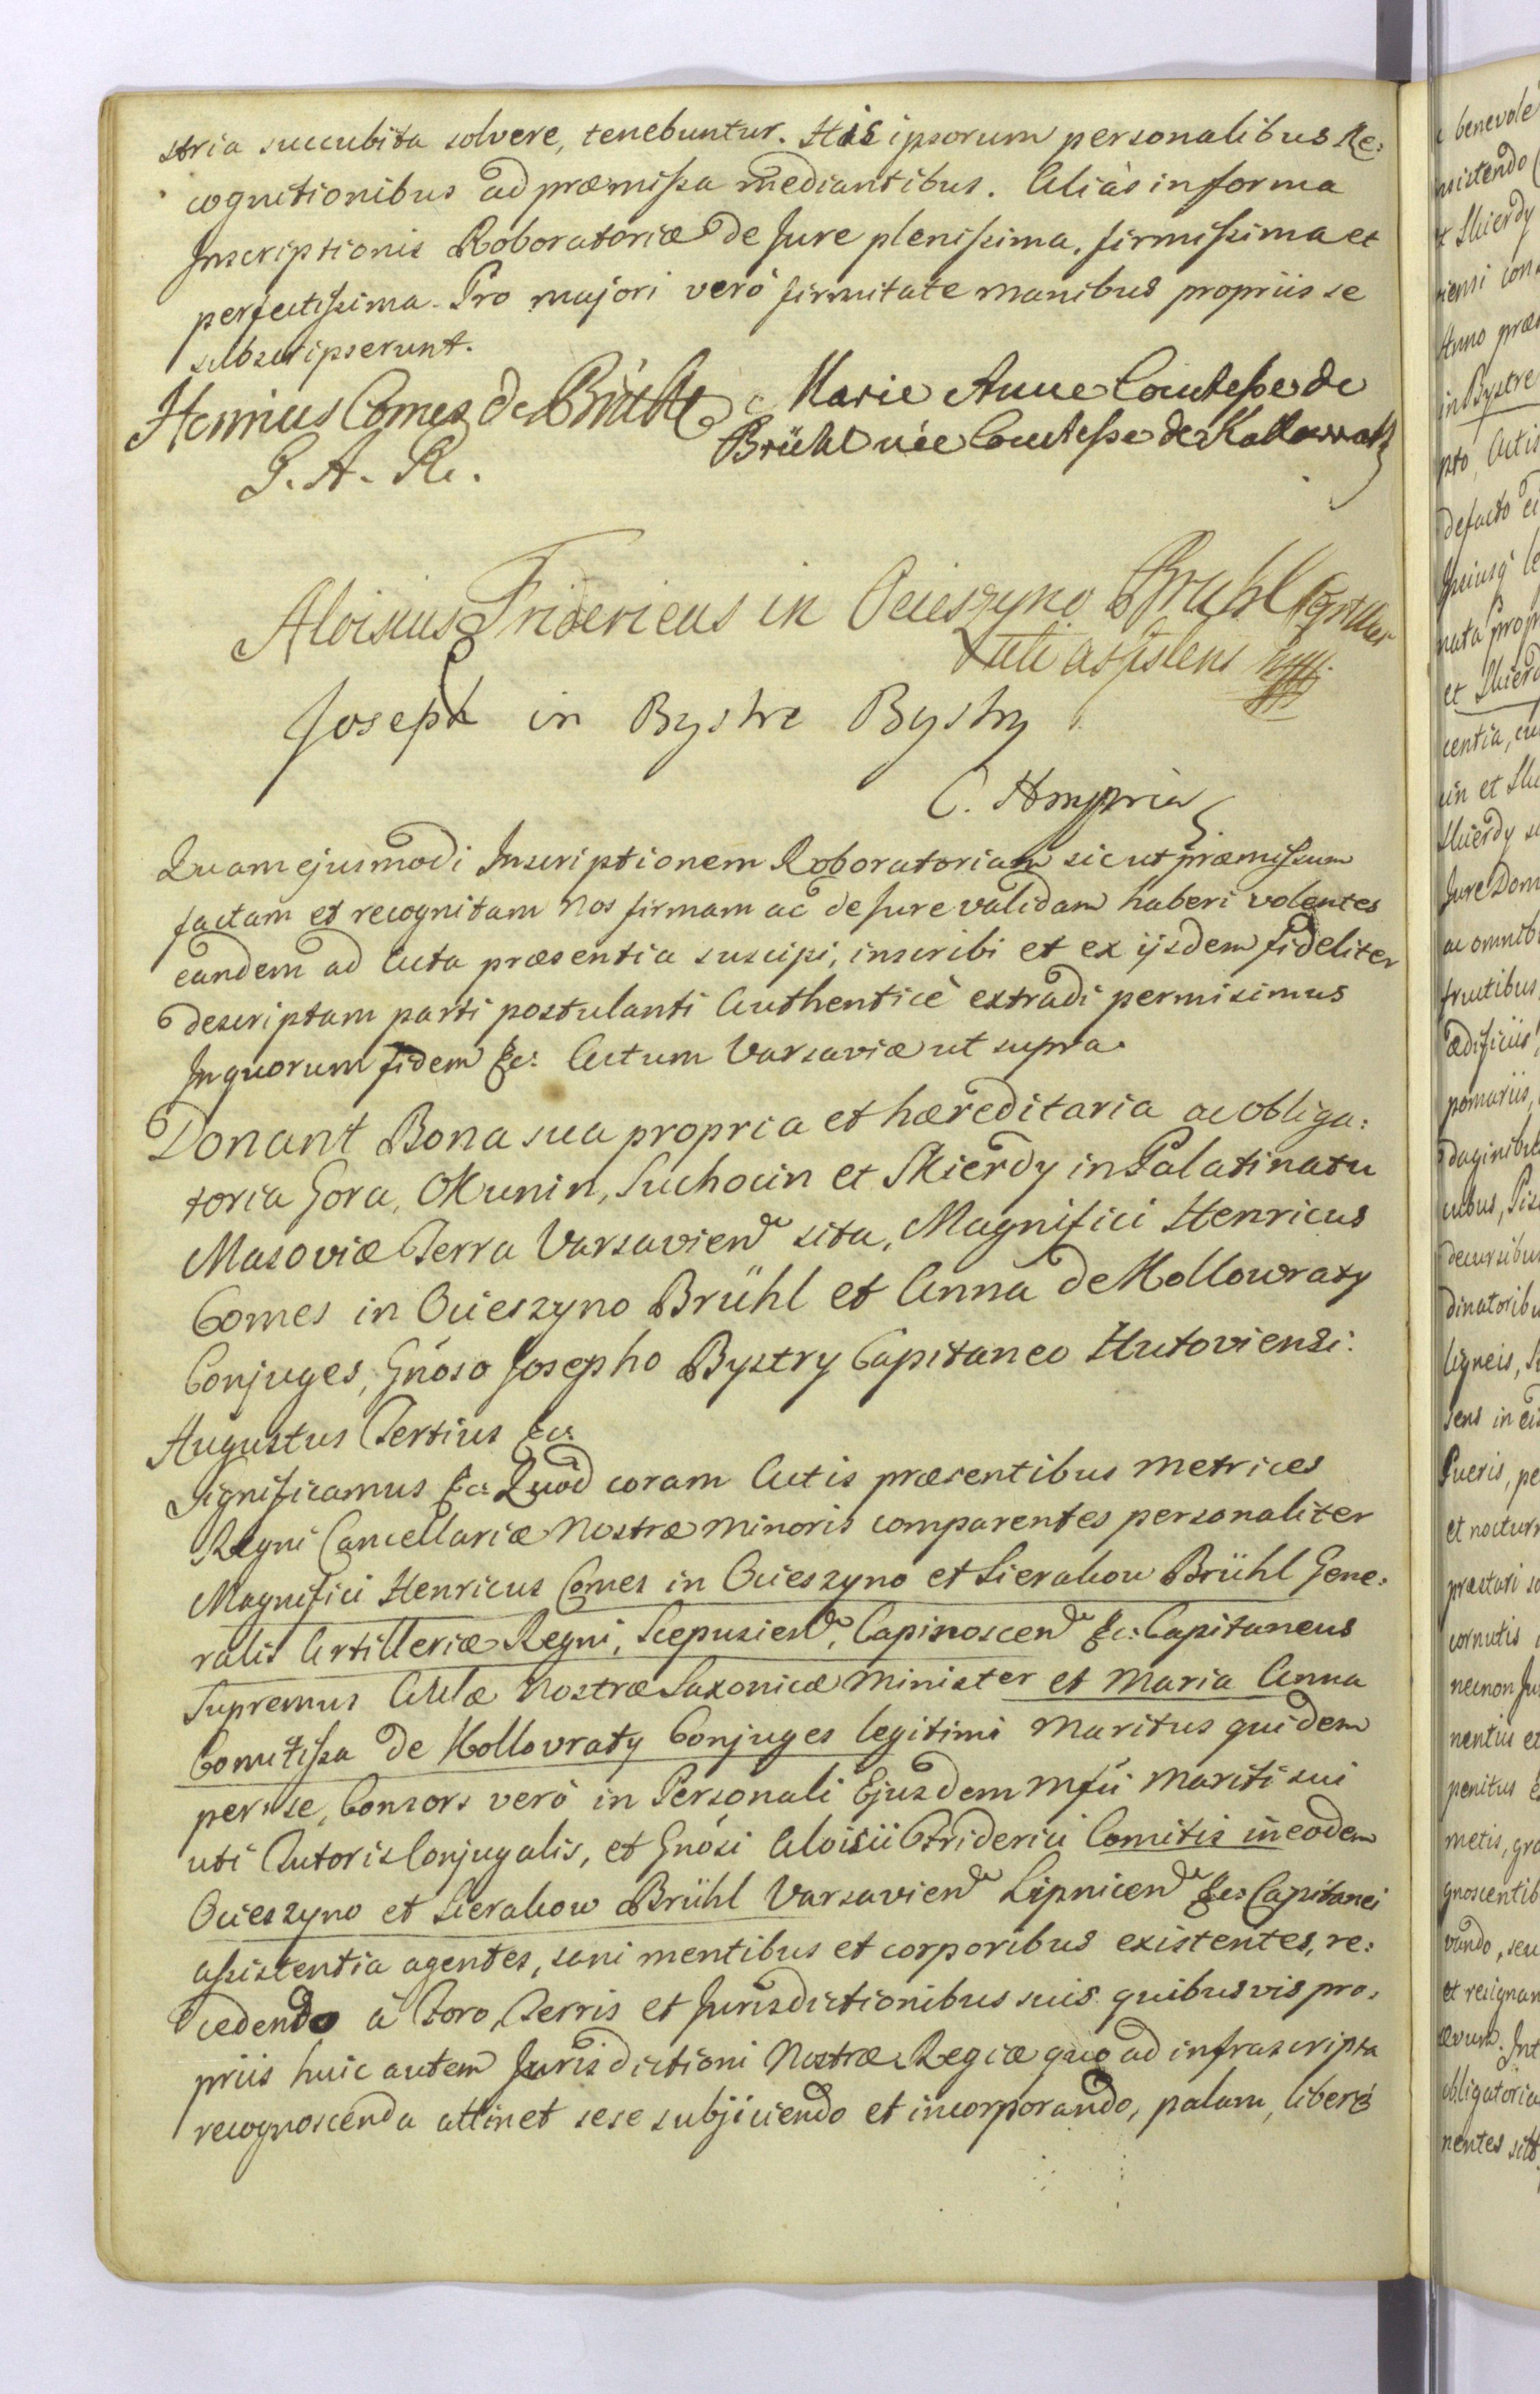 stria succubita solvere, tenebuntur. His ipsorum personalibus Re:
cognitionibus ad præmissa mediantibus. Aliàs in forma
Inscriptionis Roboratoriæ de Jure plenissima, firmissima et
perfectissima. Pro majori verò firmitate manibus propriis se
subscripserunt.
Henricus Comes de Brühl
Marie Anne Comtesse de
Brühl née Comtesse de Kollowrath
G. A. R.
Aloisius Fridericus in Ocieszyno Brühl
uti assistens
Joseph in Bystre Bystry
C. H mppria
Quam ejusmodi Inscriptionem Roboratoriam sicut præmissum
factam et recognitam Nos firmam ac de Jure validam haberi volentes
eandem ad Acta præsentia suscipi, inscribi et ex ijsdem fideliter
descriptam parti postulanti Authenticè extradi permisimus
In quorum fidem &c: Actum Varsaviæ ut supra.
Donant Bona sua propria et hæreditaria ac obliga:
toria Gora, Okunin, Suchocin et Skierdy in Palatinatu
Masoviæ Terra Varsavien sita, Magnifici Henricus
Comes in Ocieszyno Brühl et Anna de Kollowraty
Conjuges, Gnoso Josepho Bystry Capitaneo Hutoviensi.
Augustus Tertius &c:
Significamus &c: Quod coram Actis præsentibus Metrices
Regni Cancellariæ Nostræ Minoris comparentes personaliter
Magnifici Henricus Comes in Ocieszyno et Sierakow Brühl Gene:
ralis Artilleriæ Regni, Scepusien, Capinoscen &c: Capitaneus
Supremus Aulæ Nostræ Saxonicæ Minister et Maria Anna
Comitissa de Kollovraty Conjuges legitimi Maritus quidem
per se, Consors verò in Personali Ejusdem Mfci Mariti sui
uti Tutoris Conjugalis, et Gnosi Aloisii Friderici Comitis in eodem
Ocieszyno et Sierakow Brühl Varsavien Lipnicen &c: Capitanei
assistentia agentes, sani mentibus et corporibus existentes, re:
cedendo à Foro, Terris et Jurisdictionibus suis quibusvis pro:
priis huic autem Jurisdictioni Nostræ Regiæ quo ad infrascripta
recognoscenda attinet sese subjiciendo et incorporando, palam, liberè